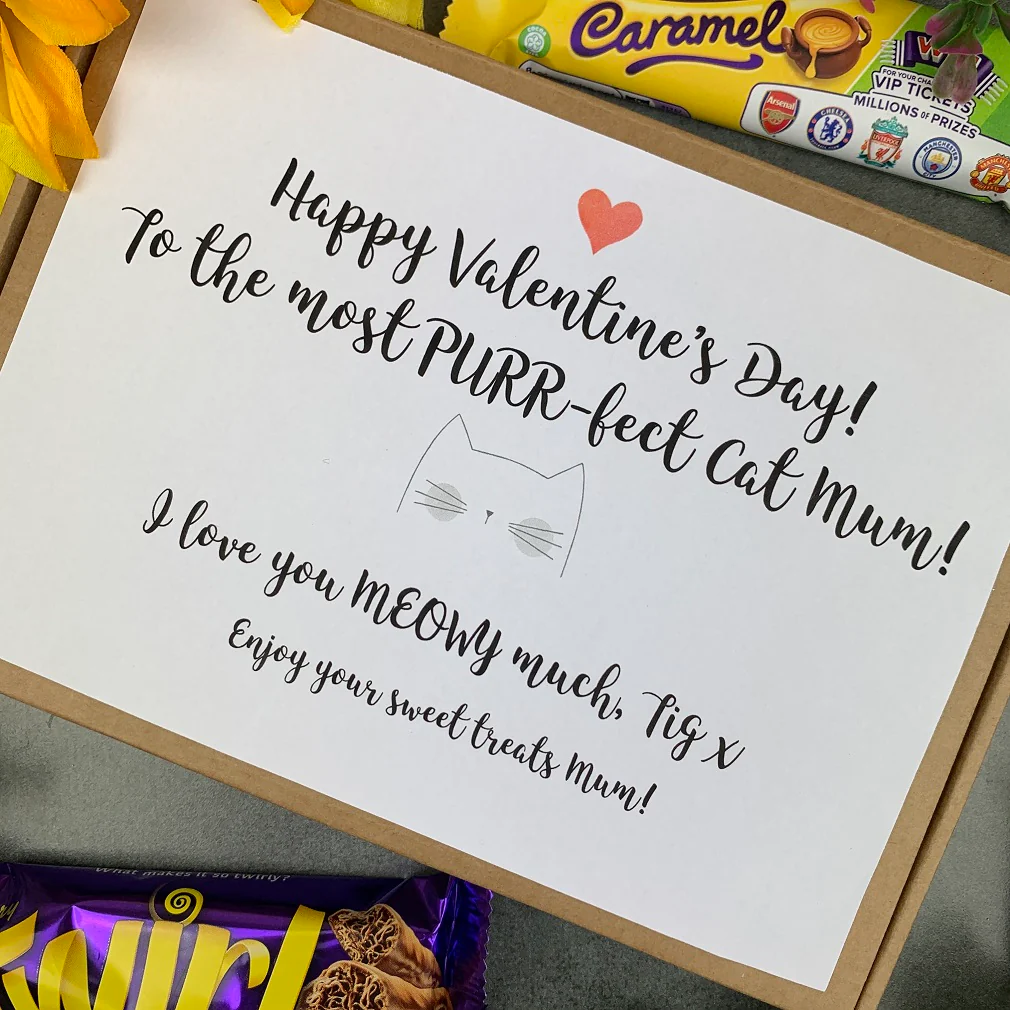 Caramel
FOR YOUR
VIP TICKETS
MILLIONS OF PRIZES
Arsenal
CHELSEA
LIVERPOOL
MANCHESTER
CITY
MANCHESTER
UNITED
Happy Valentine's Day!
To the most PURR-fect Cat Mum!
I love you MEOWY much, Tig x
Enjoy your sweet treats Mum!
What makes it so twirly?
Twirl